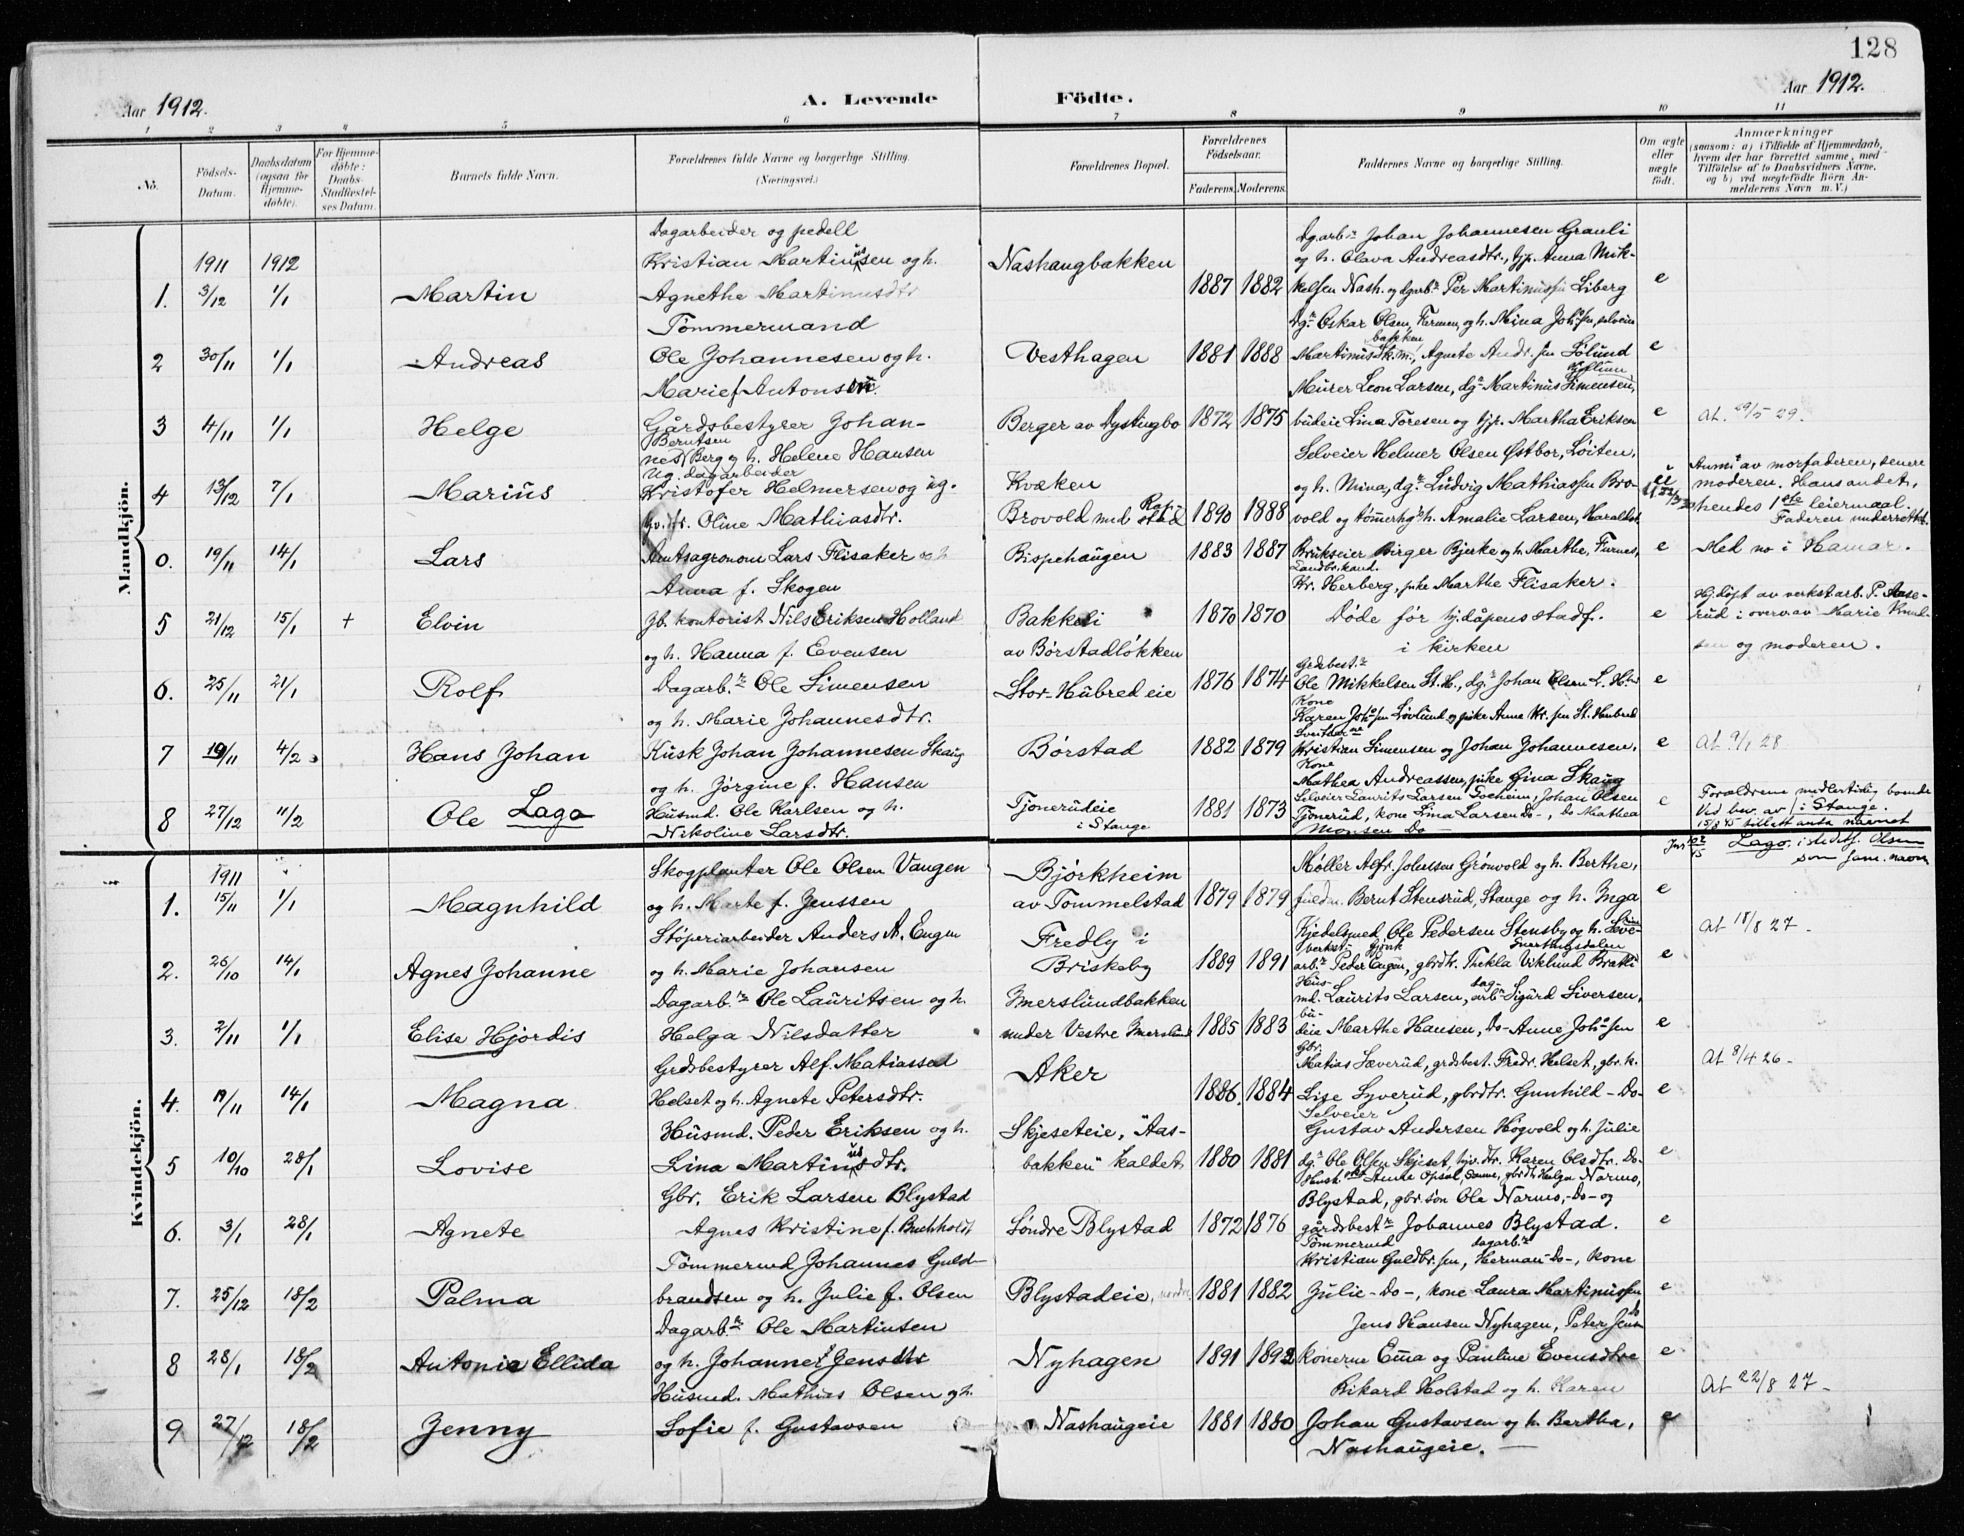 128
Aar 1912. A. Levende Födte. Aar 1912.
1 2 3 4 5 6 7 8 9 10 11
No. Födsels-Datum. Daabsdatum (ogsaa for Hjemme-döbte). For Hjemme-döbte: Daabs-Stadfæstel-ses Datum. Barnets fulde Navn. Forældrenes fulde Navne og borgerlige Stilling. (Næringsvei.) Forældrenes Bopæl. Forældrenes Födselsaar. Faderens. Moderens. Faddernes Navne og borgerlige Stilling. Om ægte eller uægte födt. Anmærkninger (saasom: a) i Tilfælde af Hjemmedaab, hvem der har forrettet samme, med Tilföielse af to Daabsvidners Navne, og b) ved uægtefödte Börn An-melderens Navn m. V.)
Mandkjön.
Dagarbeider og pedell Dgarb.r Johan Johannesen Grauli
1911 1912 Kristian Martinussen og h. Nashaugbakken og h. Olava Andreasdtr., gp. Anna Mik-
1. 3/12 1/1 Martin Agnethe Martinusdtr 1887 1882 kelsen Nash. og dgarb.r Per Martinussen Liberg e
Tömmermand Dg.r Oskar Olsen, Furnes, og h. Mina Joh.s sen, selveier
2 30/11 1/1 Andreas Ole Johannesen og h. Vesthagen 1881 1888 Martinus Sk.m., Agnete Andr. sen Sølund e
bakken
Marie f. Antonsen. Murer Leon Larsen, dg.r Martinus Simensen,
3 4/11 1/1 Helge Gårdsbestyrer Johan- Berger av Dystingbo 1872 1875 budeie Lina Toresen og gp. Martha Eriksen e At. 29/5 29.
Berntsen
nes Berg og h. Helene Hansen Selveier Helmer Olsen Østbor, Løiten,
Ug. dagarbeider Anm. av morfaderen, senere
4 13/12 7/1 Marius Kristofer Helmersen og ug. Kvæken og h. Mina, dg.r Ludvig Mathiassen Bro- moderen. Hans andet,
Oline Mathiasdtr. Brovold ved 1890 1888 vold og tømmerhg.r h. Amalie Larsen, Haralds hendes 1ste leiermaal.
Faderen underrettet.
0. 19/11 14/1 Lars Amtsagronom Lars Flisaker og h Bispehaugen 1883 1887 Brukseier Birger Bjerke og h. Marthe, Furnes, e Med no i Hamar.
Landbr.kand.
Anna f. Skogen Kr. Herberg, pike Marthe Flisaker.
5 21/12 15/1 + Elvin Jb. kontorist Nils Eriksen Holland Bakkeli 1870 1870 Døde før hj.dåpens stadf. e Hj.døpt av verkst.arb. P. Aase-
rud i overv. av Marie Knud-
og h. Hanna f. Evensen av Børstadløkken i kirken sen og moderen.
Grdsbest.r
6. 25/11 21/1 Rolf Dagarb.r Ole Simensen Stor-Hubred eie 1876 1874 Ole Mikkelsen St. H., dg.r Johan Olsen e
Kone
og h. Marie Johannesdtr. Karen Joh.s sen Løvlund og pike Anne Kr. sen St. Hubred
7 19/11 4/2 Hans Johan Kusk Johan Johannesen Skaug Børstad 1882 1879 Kristian Simensen og Johan Johannesen, e At 9/1 28
Kone
og h. Jørgine f. Hansen Mathea Andreassen, pike Gina Skaug
8 27/12 11/2 Ole Lago Husmd. Ole Karlsen og h. Tjonerudeie 1881 1873 Selveier Laurits Larsen Johan Olsen e Forældrene midlertidig boende
Nikoline Larsdtr. i Stange Tjonerud, kone Lina Larsen Do-, do Mathea i Stange.
Monsen Do- Ved bev. av 15/8 45 tillatt anta navnet
Lago i stedetf. Olsen
som fam. navn
Kvindekjön.
1911 Skogplanter Ole Olsen Vangen Bjørkheim Møller Alfr. Johnsen Grønvold og h. Berthe,
1. 15/11 1/1 Magnhild og h. Marte f. Jenssen av Tommelstad 1879 1879 Bernt Stensrud, Stange og h. Inga e
Støperiarbeider Anders A. Engen Fredly i Kjedelsmed Ole Pedersen Stensby og h. At 18/8 27
2. 26/10 14/1 Agnes Johanne og h. Marie Johansen Briskeby 1889 1891 arb.r Peder Engen, gbrdtr. Thekla Viklund Bratli e
Dagarb.r Ole Lauritsen og h. Imerslundbakken md. Laurits Larsen, arb.r Sigurd Siversen,
3. 2/11 1/1 Elise Hjördis Helga Nilsdatter under Vestre Imerslund 1885 1883 deie Marthe Hansen, Do- Anne Joh.s sen e
Grdsbestyrer Alf. Matiassen Aker Matias Sæverud, grdsbest. Fredr. Helset, gbr. k. At 8/4 26
4. 19/11 14/1 Magna Helset og h. Agnete Petersdtr. 1886. 1884 Lise Syverud, gbrdtr. Gunhild -Do- e
Selveier
Husmd. Peder Eriksen og h. Skjeseteie, "Aas- Gustav Andersen Høgvold og h. Julie
5 10/10 28/1 Lovise Lina Martinusdtr. bakken" kaldet 1880 1881 dg.r Ole Olsen Skjeset, hjv.dtr. Karen Olsdtr. Do- e
Gbr. Erik Larsen Blystad Blystad, gbr.søn Ole Narmo, -Do- og
6. 3/1 28/1 Agnete Agnes Kristine f. Buchholdt Søndre Blystad 1872 1876 gårdsbest.r Johannes Blystad. e
Tømmermd dagarb.r
Tømmermd Johannes Guld- Kristian Guldbr. sen, Herman -Do-, kone
7. 25/12 18/2 Palma brandsen og h. Julie f. Olsen Blystadeie, nordre 1881 1882 Julie -Do-, kone Laura Martinussen e
Dagarb.r Ole Martinsen Jens Hansen Nyhagen, Peter Jens
8 28/1 18/2 Antonie Ellida og h. Johanne Jensdtr Nyhagen 1891 1892 konerne Ema og Pauline Evensdtre e
Husmd. Mathias Olsen og h. Rikard Holstad og h. Karen At 22/8 27
9 27/12 18/2 Jenny Sofie f. Gustavsen Nashaugeie 1881 1880 Johan Gustavsen og h. Bertha, e
Nashaugeie.